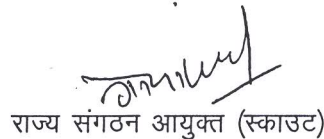 राज्य संगठन आयुक्त (स्काउट)